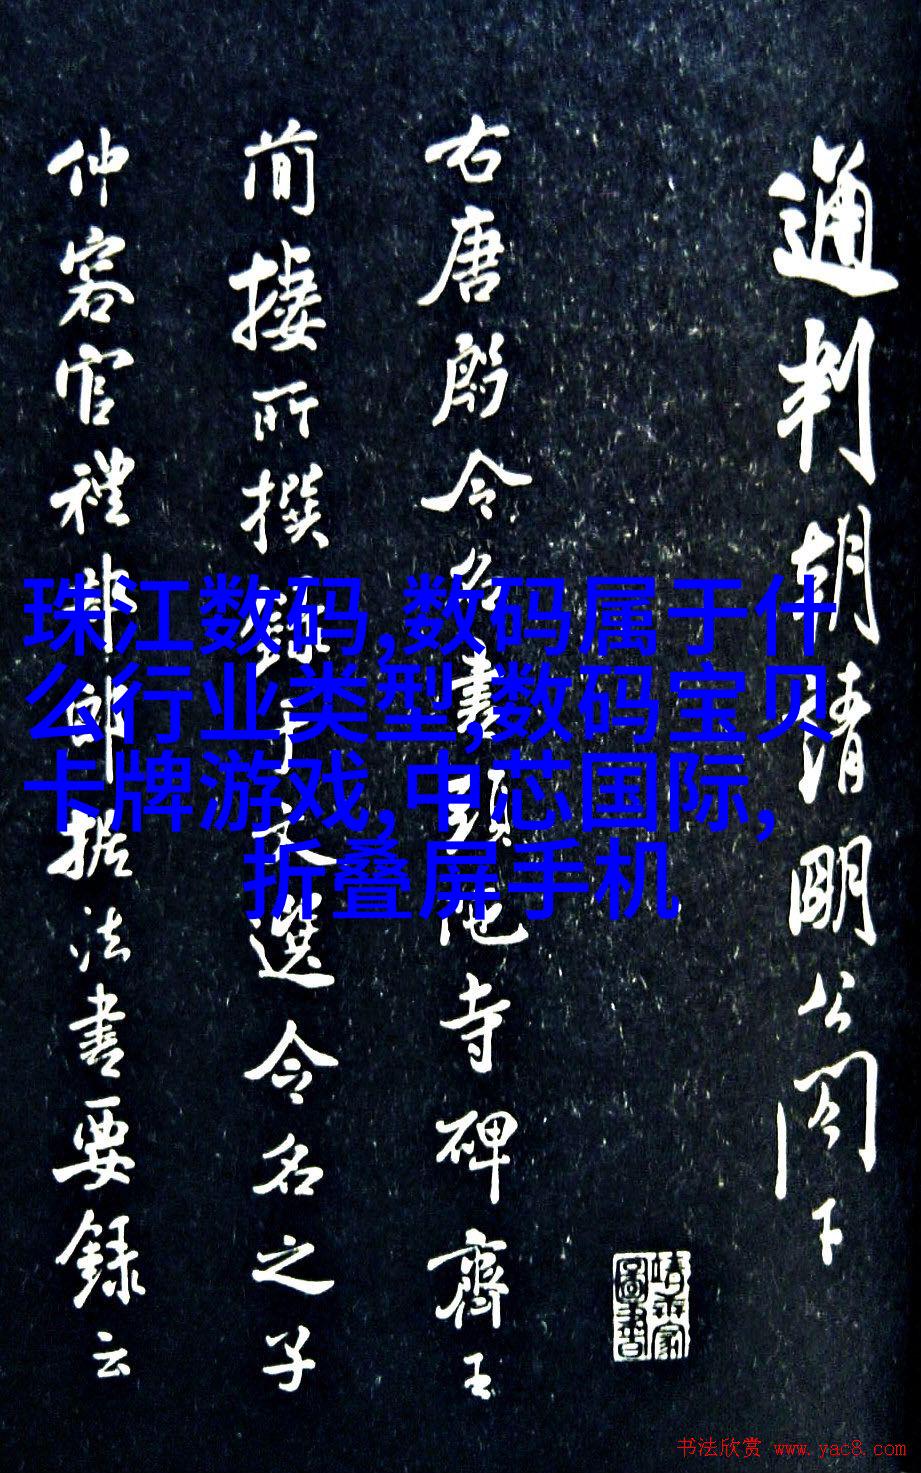 通判朝請明公閤下
右唐殷令名書頭陀寺碑齊王
簡棲所撰錄于文選令名之子
仲容官禮部郎據法書要錄云
珠江数码,数码属于什
么行业类型,数码宝贝
卡牌游戏,中芯国际,
折叠屏手机
书法欣赏 www.yac8.com